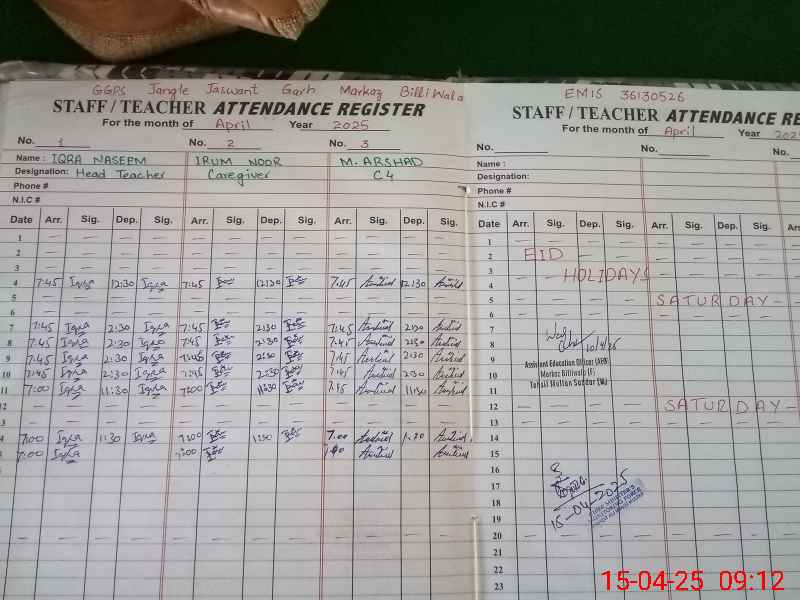 GGPS Jangle Jaswant Garh Markaz Billi Wala
STAFF / TEACHER ATTENDANCE REGISTER
For the month of April Year 2025
No. 1 No. 2 No. 3
Name : IQRA NASEEM IRUM NOOR M. ARSHAD
Designation: Head Teacher Caregiver C4
Phone #
N.I.C #
Date Arr. Sig. Dep. Sig. Arr. Sig. Dep. Sig. Arr. Sig. Dep. Sig.
1
2
3
4 7:45 Iqra 12:30 Iqra 7:45 12:30 7:45 12:30
5
6
7 7:45 Iqra 2:30 Iqra 7:45 2:30 7:45 2:30
8 7:45 Iqra 2:30 Iqra 7:45 2:30 7:45 2:30
9 7:45 Iqra 2:30 Iqra 2:30 7:45 2:30
10 7:45 Iqra 2:30 Iqra 7:45 2:30 7:45 2:30
11 7:00 Iqra 11:30 Iqra 7:00 11:30 11:30
12
13
7:00 Iqra 11:30 Iqra 7:00 7:00
7:00 Iqra 7:00
EMIS 36130526
STAFF / TEACHER ATTENDANCE RE
For the month of April Year 2025
No. No. No.
Name :
Designation:
Phone #
N.I.C #
Date Arr. Sig. Dep. Sig. Arr. Sig. Dep. Sig. Arr
1
2 EID
3 HOLIDAYS
4
5 SATURDAY
6
7
8 10/4/25
9 Assistant Education Officer (AEO)
10 Markaz Billiwala (F)
11 Tehsil Multan Saddar (M)
12 SATURDAY
13
14
15
16
17
18 15-04-2025
19
20
21
22
23
15-04-25 09:12